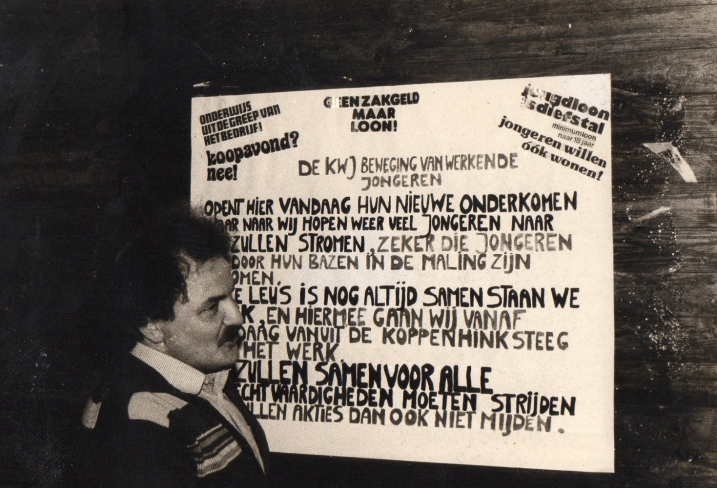 ONDERWIJS
UIT DE GREEP VAN
HET BEDRIJF!
koopavond?
nee!
GEEN ZAKGELD
MAAR
LOON!
jeugdloon
is diefstal
minimumloon
naar 18 jaar
jongeren willen
óók wonen!
DE KWJ BEWEGING VAN WERKENDE
JONGEREN
OPENT HIER VANDAAG HUN NIEUWE ONDERKOMEN
NAAR WIJ HOPEN WEER VEEL JONGEREN NAAR
ZULLEN STROMEN, ZEKER DIE JONGEREN
DOOR HUN BAZEN IN DE MALING ZIJN
OMEN.
LEUS IS NOG ALTIJD SAMEN STAAN WE
K, EN HIERMEE GAAN WIJ VANAF
DAAG VANUIT DE KOPPENHINKSTEEG
HET WERK.
ZULLEN SAMEN VOOR ALLE
ECHTVAARDIGHEDEN MOETEN STRIJDEN
ULLEN AKTIES DAN OOK NIET MIJDEN.